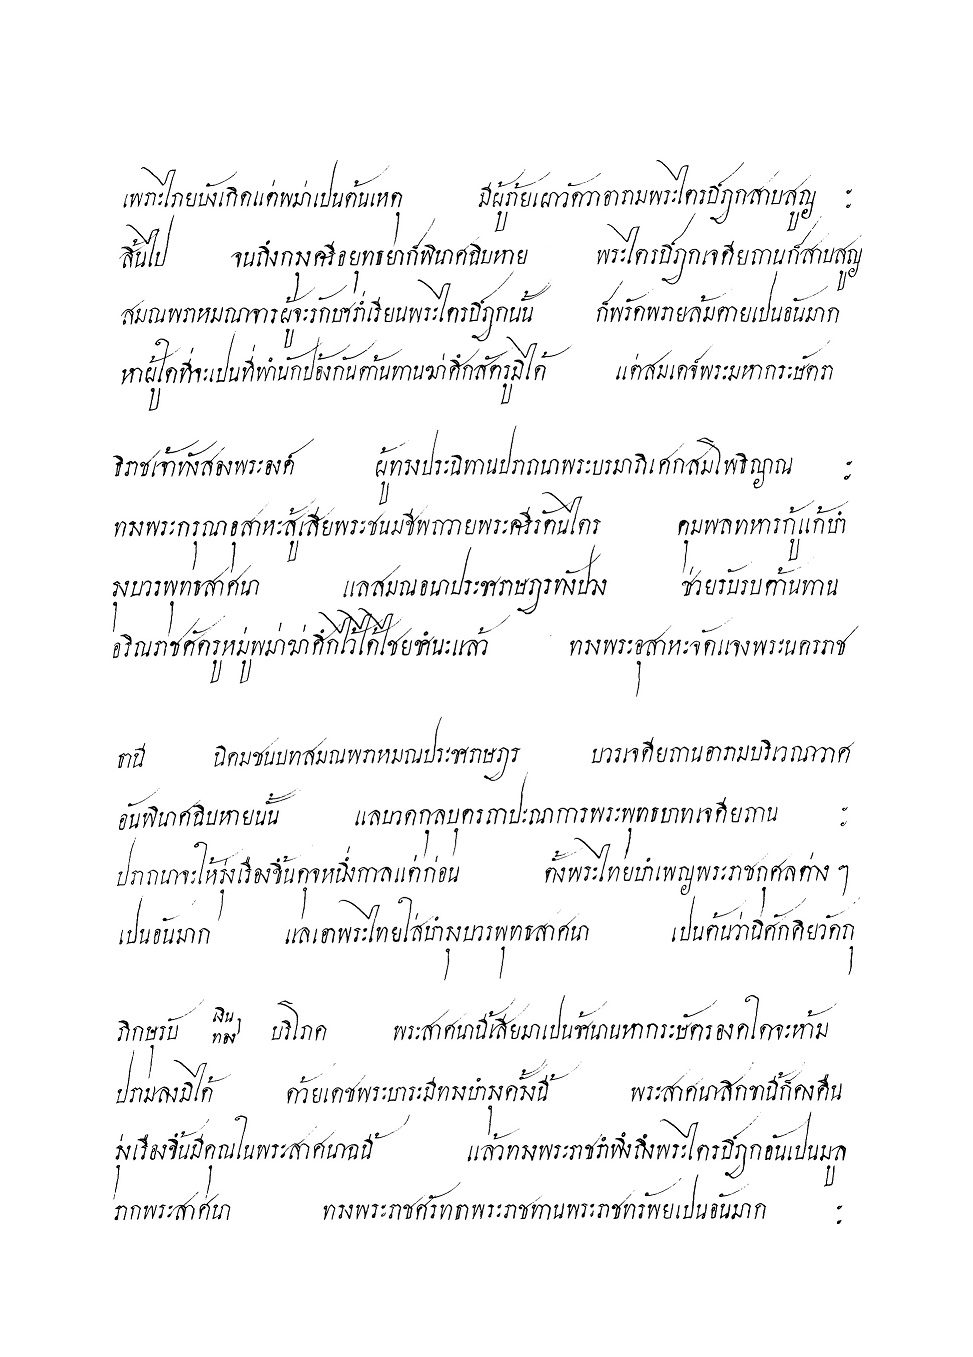 เพราะไภยบังเกิดแต่พม่าเปนต้นเหตุ มีผู้ร้ายเผาวัดวาอารามพระไตรปิฎกสาบสูญ ฯ
สิ้นไป จนถึงกรุงศรีอยุทธยาก็พินาศฉิบหาย พระไตรปิฎกเจดียถานก็สาบสูญ
สมณพราหมณาจารผู้จะรักษาร่ำเรียนพระไตรปิฎกนั้น ก็พรัดพรายล้มตายเปนอันมาก
หาผู้ใดที่จะเปนที่พำนักป้องกันต้านทานฆ่าศึกสัตรูมิได้ แต่สมเดจ์พระมหากระษัตรา
ธิราชเจ้าทังสองพระองค์ ผู้ทรงประนิทานปราถนาพระบรมาภิเศกสมโพธิญาณ ฯ
ทรงพระกรุณาอุสาหะสู้เสียพระชนมชีพถวายพระศรีรัตนไตร คุมพลทหารกู้แก้บำ
รุงบวรพุทธสาศนา แลสมณอนาประชาราษฎรทังปวง ช่วยรับรบต้านทาน
อริณราชศัตรูหมู่พม่าฆ่าศึกไว้ได้ไชยชำนะแล้ว ทรงพระอุสาหะจัดแจงพระนครราช
ธานี นิคมชนบทสมณพราหมณประชาราษฎร บวรเจดียถานอารามบริเวณวาศ
อันพินาศฉิบหายนั้น แลบาดกุลบุตรถาปะณาการพระพุทธบาทเจดียถาน ฯ
ปราถนาจะให้รุ่งเรืองขึ้นดุจหนึ่งกาลแต่ก่อน ตั้งพระไทยบำเพญพระราชกุศลต่าง ๆ
เปนอันมาก แลเอาพระไทยใส่บำรุงบวรพุทธสาศนา เปนต้นว่านิศักคิยวัดถุ
ภิกษุรับ เงิน ทอง บริโภค พระสาศนานี้เสียมาเปนช้านานหากระษัตรองคใดจะห้าม
ปรามลงมิได้ ด้วยเดชพระบาระมีทรงบำรุงครั้งนี้ พระสาศนาสิกขานี้ก็คงคืน
รุ่งเรืองขึ้นมีคุณในพระสาศนาฉนี้ แล้วทรงพระราชรำพึงถึงพระไตรปิฎกอันเปนมูล
รากพระสาศนา ทรงพระราชศรัทธาพระราชทานพระราชทรัพย์เปนอันมาก ฯ